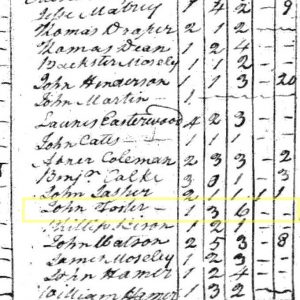 Jesse Mabrey 1 4 2 - 9
Thomas Draper 2 1 2 -
Thomas Dean 1 2 4 -
Beckster Mosely 1 1 2 -
John Henderson 1 1 3 - 20
John Martin 1
Launes Easterwood 4 2 3 -
John Cates 1 1 1
Abner Coleman 2 3 3 - 2
Benjn 3 0 1 - 3
John Lasher 2 1 1 1 1
John Foster 1 3 6 -
Phillip 1 2 1 -
John Watson 2 5 3 - 8
James Moseley 1 2 3 -
John Hamer 1 2 4 -
William Hamer 1 3 2